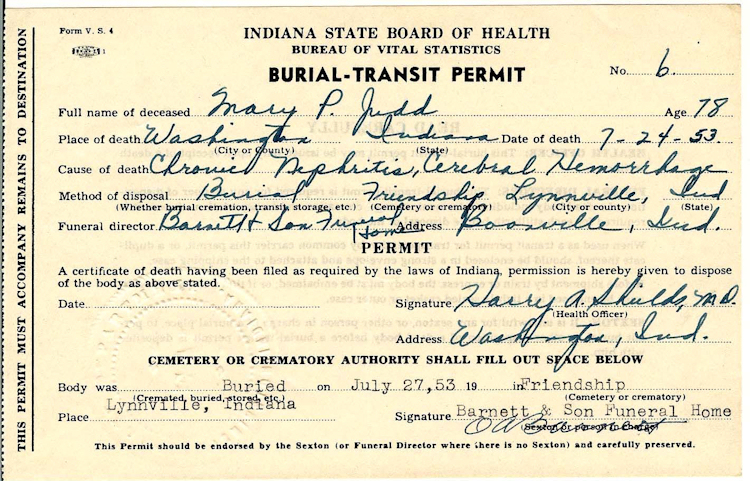 Form V. S. 4
INDIANA STATE BOARD OF HEALTH
BUREAU OF VITAL STATISTICS
BURIAL-TRANSIT PERMIT
No. 6.
Full name of deceased Mary P. Judd Age 78
Place of death Washington Indiana Date of death 7-24-53.
(City or County) (State)
Cause of death Chronic Nephrites, Cerebral Hemorrhage
Method of disposal Burial Friendship Lynnville, Ind
(Whether burial cremation, transit, storage, etc.) (Cemetery or crematory) (City or county) (State)
Funeral director Barnett & Son Funeral Home Address Boonville, Ind.
PERMIT
A certificate of death having been filed as required by the laws of Indiana, permission is hereby given to dispose
of the body as above stated.
Date Signature Harry A. Shields, M.D.
(Health Officer)
Address Washington, Ind.
CEMETERY OR CREMATORY AUTHORITY SHALL FILL OUT SPACE BELOW
Body was Buried on July 27,53 19 in Friendship
(Cremated, buried, stored, etc.) (Cemetery or crematory)
Place Lynnville, Indiana Signature Barnett & Son Funeral Home
(Sexton or person in charge)
This Permit should be endorsed by the Sexton (or Funeral Director where there is no Sexton) and carefully preserved.
THIS PERMIT MUST ACCOMPANY REMAINS TO DESTINATION